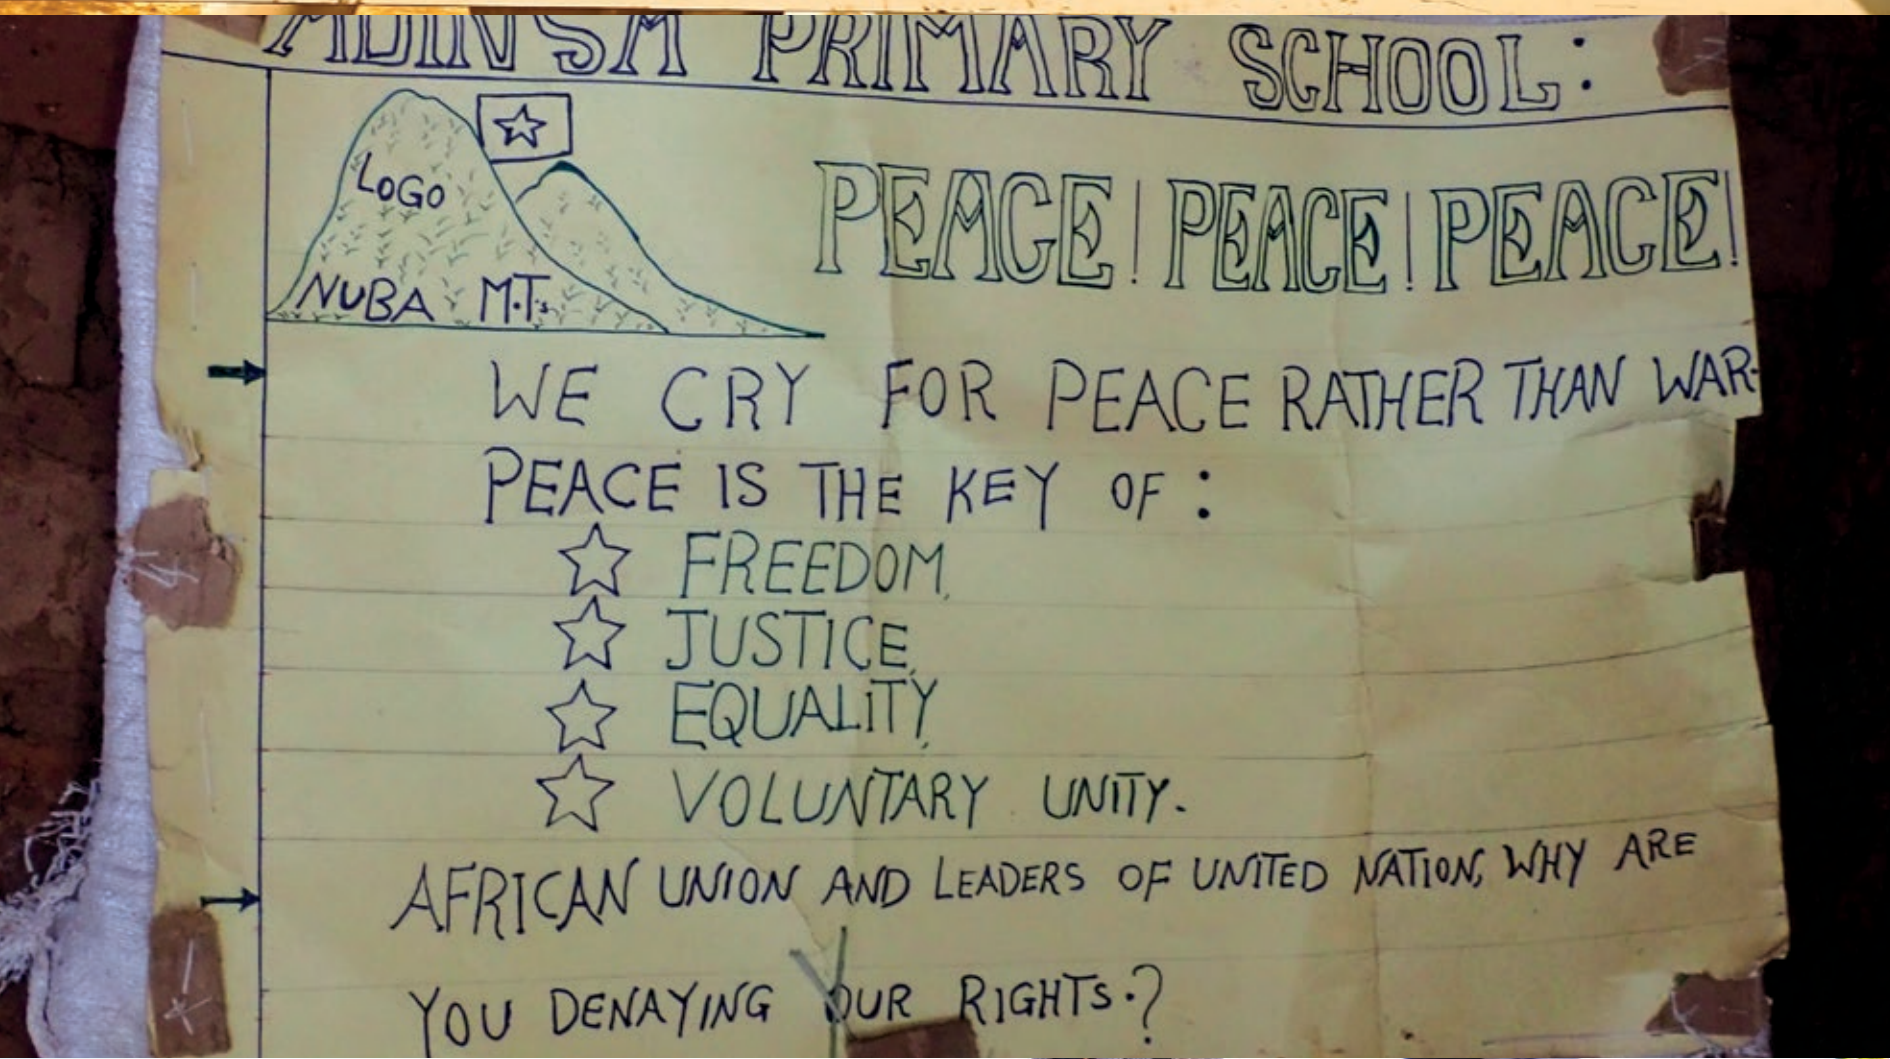 ADINSA PRIMARY SCHOOL:
LOGO
NUBA M.T.s
PEACE! PEACE! PEACE!
WE CRY FOR PEACE RATHER THAN WAR.
PEACE IS THE KEY OF :
FREEDOM,
JUSTICE,
EQUALITY,
VOLUNTARY UNITY.
AFRICAN UNION AND LEADERS OF UNITED NATION, WHY ARE
YOU DENAYING OUR RIGHTS.?